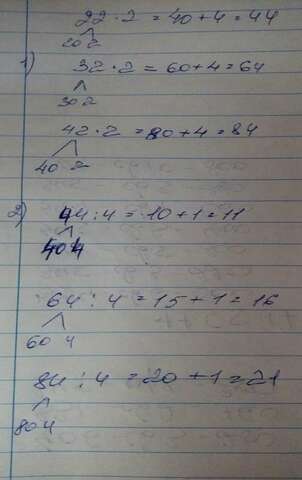 22 · 2 = 40 + 4 = 44
20 2
1) 32 · 2 = 60 + 4 = 64
30 2
42 · 2 = 80 + 4 = 84
40 2
2) 44 : 4 = 10 + 1 = 11
40 4
64 : 4 = 15 + 1 = 16
60 4
84 : 4 = 20 + 1 = 21
80 4